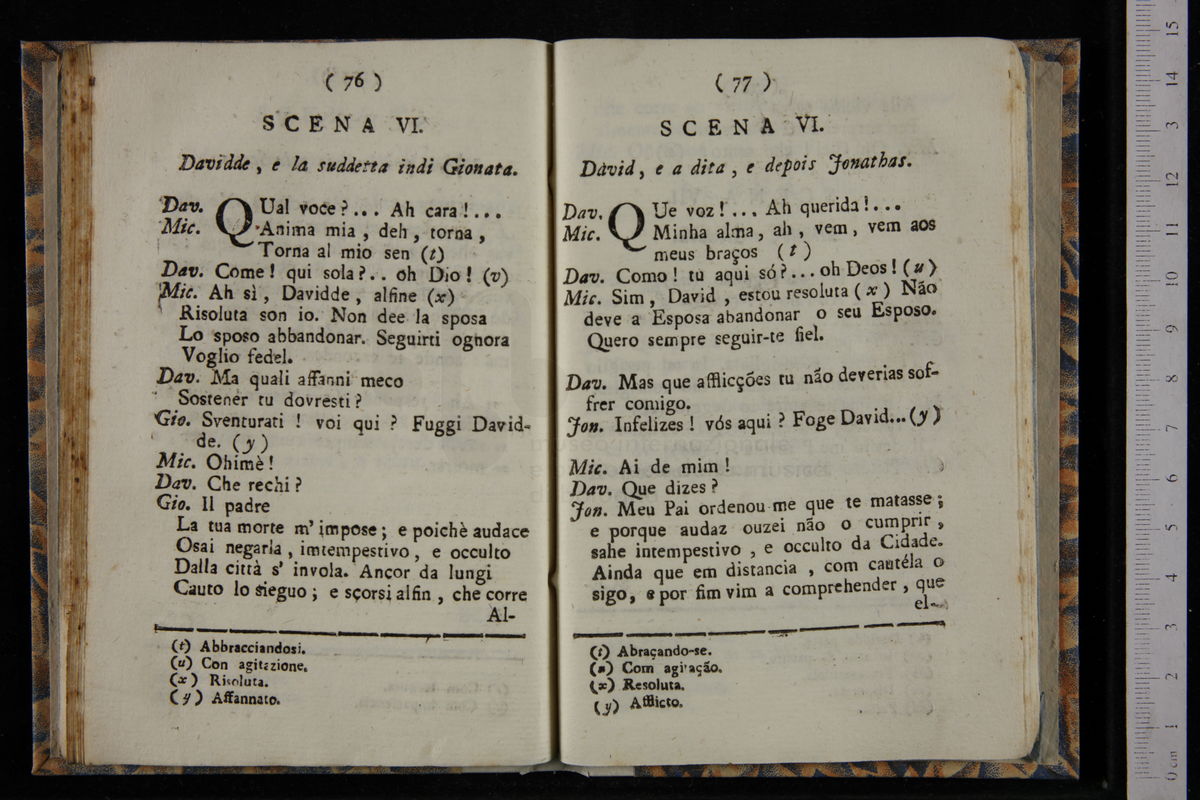 ( 76 )
SCENA VI.
Davidde, e la suddetta indi Gionata.
Dav. QUal voce?... Ah cara!...
Mic. Anima mia, deh, torna,
Torna al mio sen (t)
Dav. Come! qui sola?.. oh Dio! (v)
Mic. Ah sì, Davidde, alfine (x)
Risoluta son io. Non dee la sposa
Lo sposo abbandonar. Seguirti ognora
Voglio fedel.
Dav. Ma quali affanni meco
Sostener tu dovresti?
Gio. Sventurati! voi qui? Fuggi David-
de. (y)
Mic. Ohimè!
Dav. Che rechi?
Gio. Il padre
La tua morte m' impose; e poichè audace
Osai negarla, imtempestivo, e occulto
Dalla città s' invola. Ancor da lungi
Cauto lo sieguo; e sçorsi alfin, che corre
Al-
(t) Abbracciandosi.
(u) Con agitazione.
(x) Risoluta.
(y) Affannato.
( 77 )
SCENA VI.
David, e a dita, e depois Jonathas.
Dav. QUe voz!... Ah querida!...
Mic. Minha alma, ah, vem, vem aos
meus braços (t)
Dav. Como! tu aqui só?... oh Deos! (u)
Mic. Sim, David, estou resoluta (x) Não
deve a Esposa abandonar o seu Esposo.
Quero sempre seguir-te fiel.
Dav. Mas que afflicções tu não deverias sof-
frer comigo.
Jon. Infelizes! vós aqui? Foge David... (y)
Mic. Ai de mim!
Dav. Que dizes?
Jon. Meu Pai ordenou-me que te matasse;
e porque audaz ouzei não o cumprir,
sahe intempestivo, e occulto da Cidade.
Ainda que em distancia, com cautéla o
sigo, e por fim vim a comprehender, que
el-
(t) Abraçando-se.
(u) Com agitação.
(x) Resoluta.
(y) Afflicto.
15
14
13
12
11
10
9
8
7
6
5
4
3
2
1
0 cm